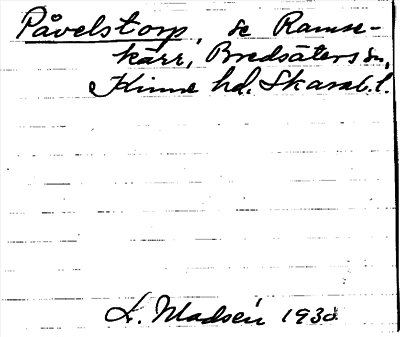 Påvelstorp, se Ramse-
kärr, Bredsäters sn,
Kinne hd. Skarab. l.
L. Madsén 1930